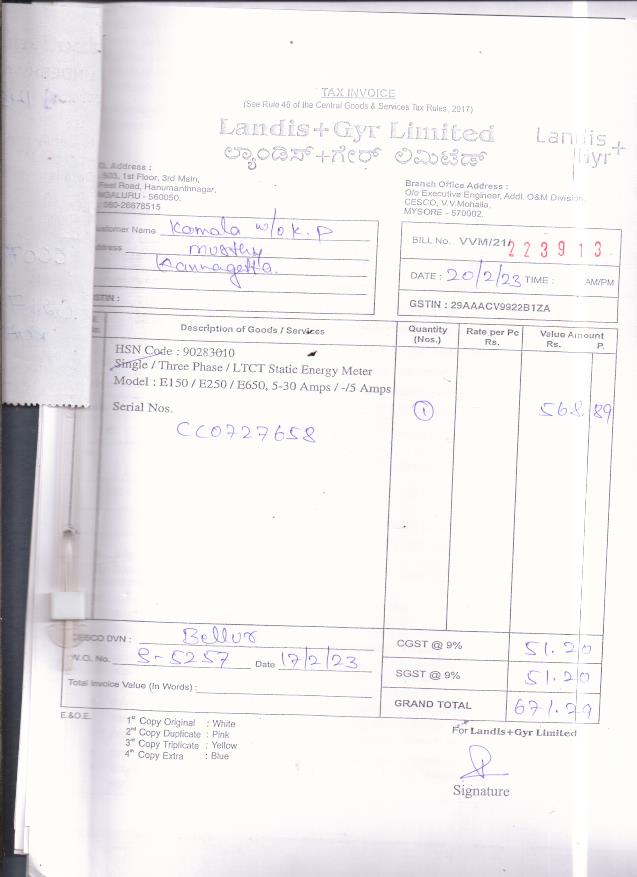 TAX INVOICE
(See Rule 46 of the Central Goods & Services Tax Rules, 2017)
Landis+Gyr Limited
ಲ್ಯಾಂಡಿಸ್+ಗೇರ್ ಲಿಮಿಟೆಡ್
Landis
Gyr+
Address :
503, 1st Floor, 3rd Main,
Feet Road, Hanumanthnagar,
NGALURU - 560050.
080-26678515
Branch Office Address :
O/o Executive Engineer, Addl. O&M Division,
CESCO, V.V.Mohalla,
MYSORE - 570002.
ustomer Name Kamala w/o K. P
ddress murthy
Kannagetta.
GSTIN :
BILL No. VVM/21/ 223913
DATE : 20/2/23 TIME : AM/PM
GSTIN : 29AAACV9922B1ZA
Description of Goods / Services Quantity (Nos.) Rate per Pc Rs. Value Amount Rs. P.
HSN Code : 90283010
Single / Three Phase / LTCT Static Energy Meter
Model : E150 / E250 / E650, 5-30 Amps / -/5 Amps
Serial Nos. 1 568 89
CC0727658
CESCO DVN : Bellur
W.O. No. S-5257 Date 17/2/23
Total Invoice Value (In Words) :
CGST @ 9% 51.20
SGST @ 9% 51.20
GRAND TOTAL 671.29
E.&O.E.
1st Copy Original : White
2nd Copy Duplicate : Pink
3rd Copy Triplicate : Yellow
4th Copy Extra : Blue
For Landis+Gyr Limited
Signature